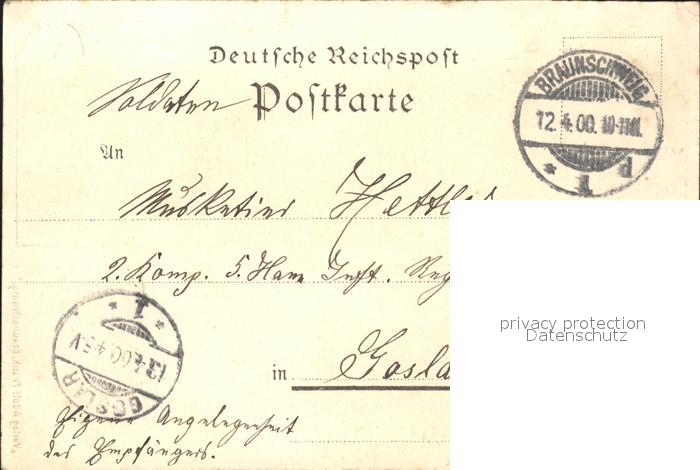 Deutsche Reichspost
Soldaten Postkarte
BRAUNSCHWEIG
12.4.00. 10-11V.
* 1 p
An
Musketier
2. Komp. 5. Hann Inft. Reg
privacy protection
Datenschutz
* 1 *
13.4.00.4-5V
GOSLAR
in Gosla
Eigene Angelegenheit
des Empfängers.